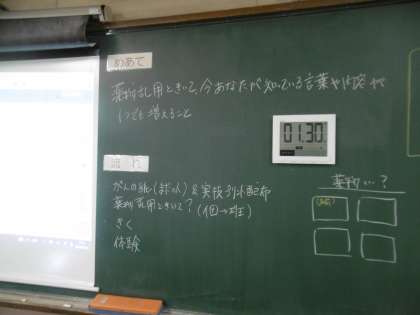 めあて
薬物乱用ときいて、今あなたが知っている言葉や内容が
1つでも増えること
01:30
流れ
がんの紙(鈴木)&実技予1枚配布
薬物乱用ときいて?(個→班)
きく
体験
薬物…?